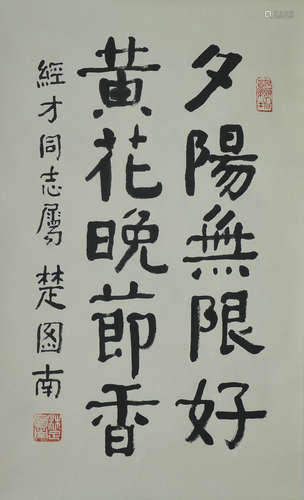 夕陽無限好
黄花晚節香
經才同志屬 楚图南